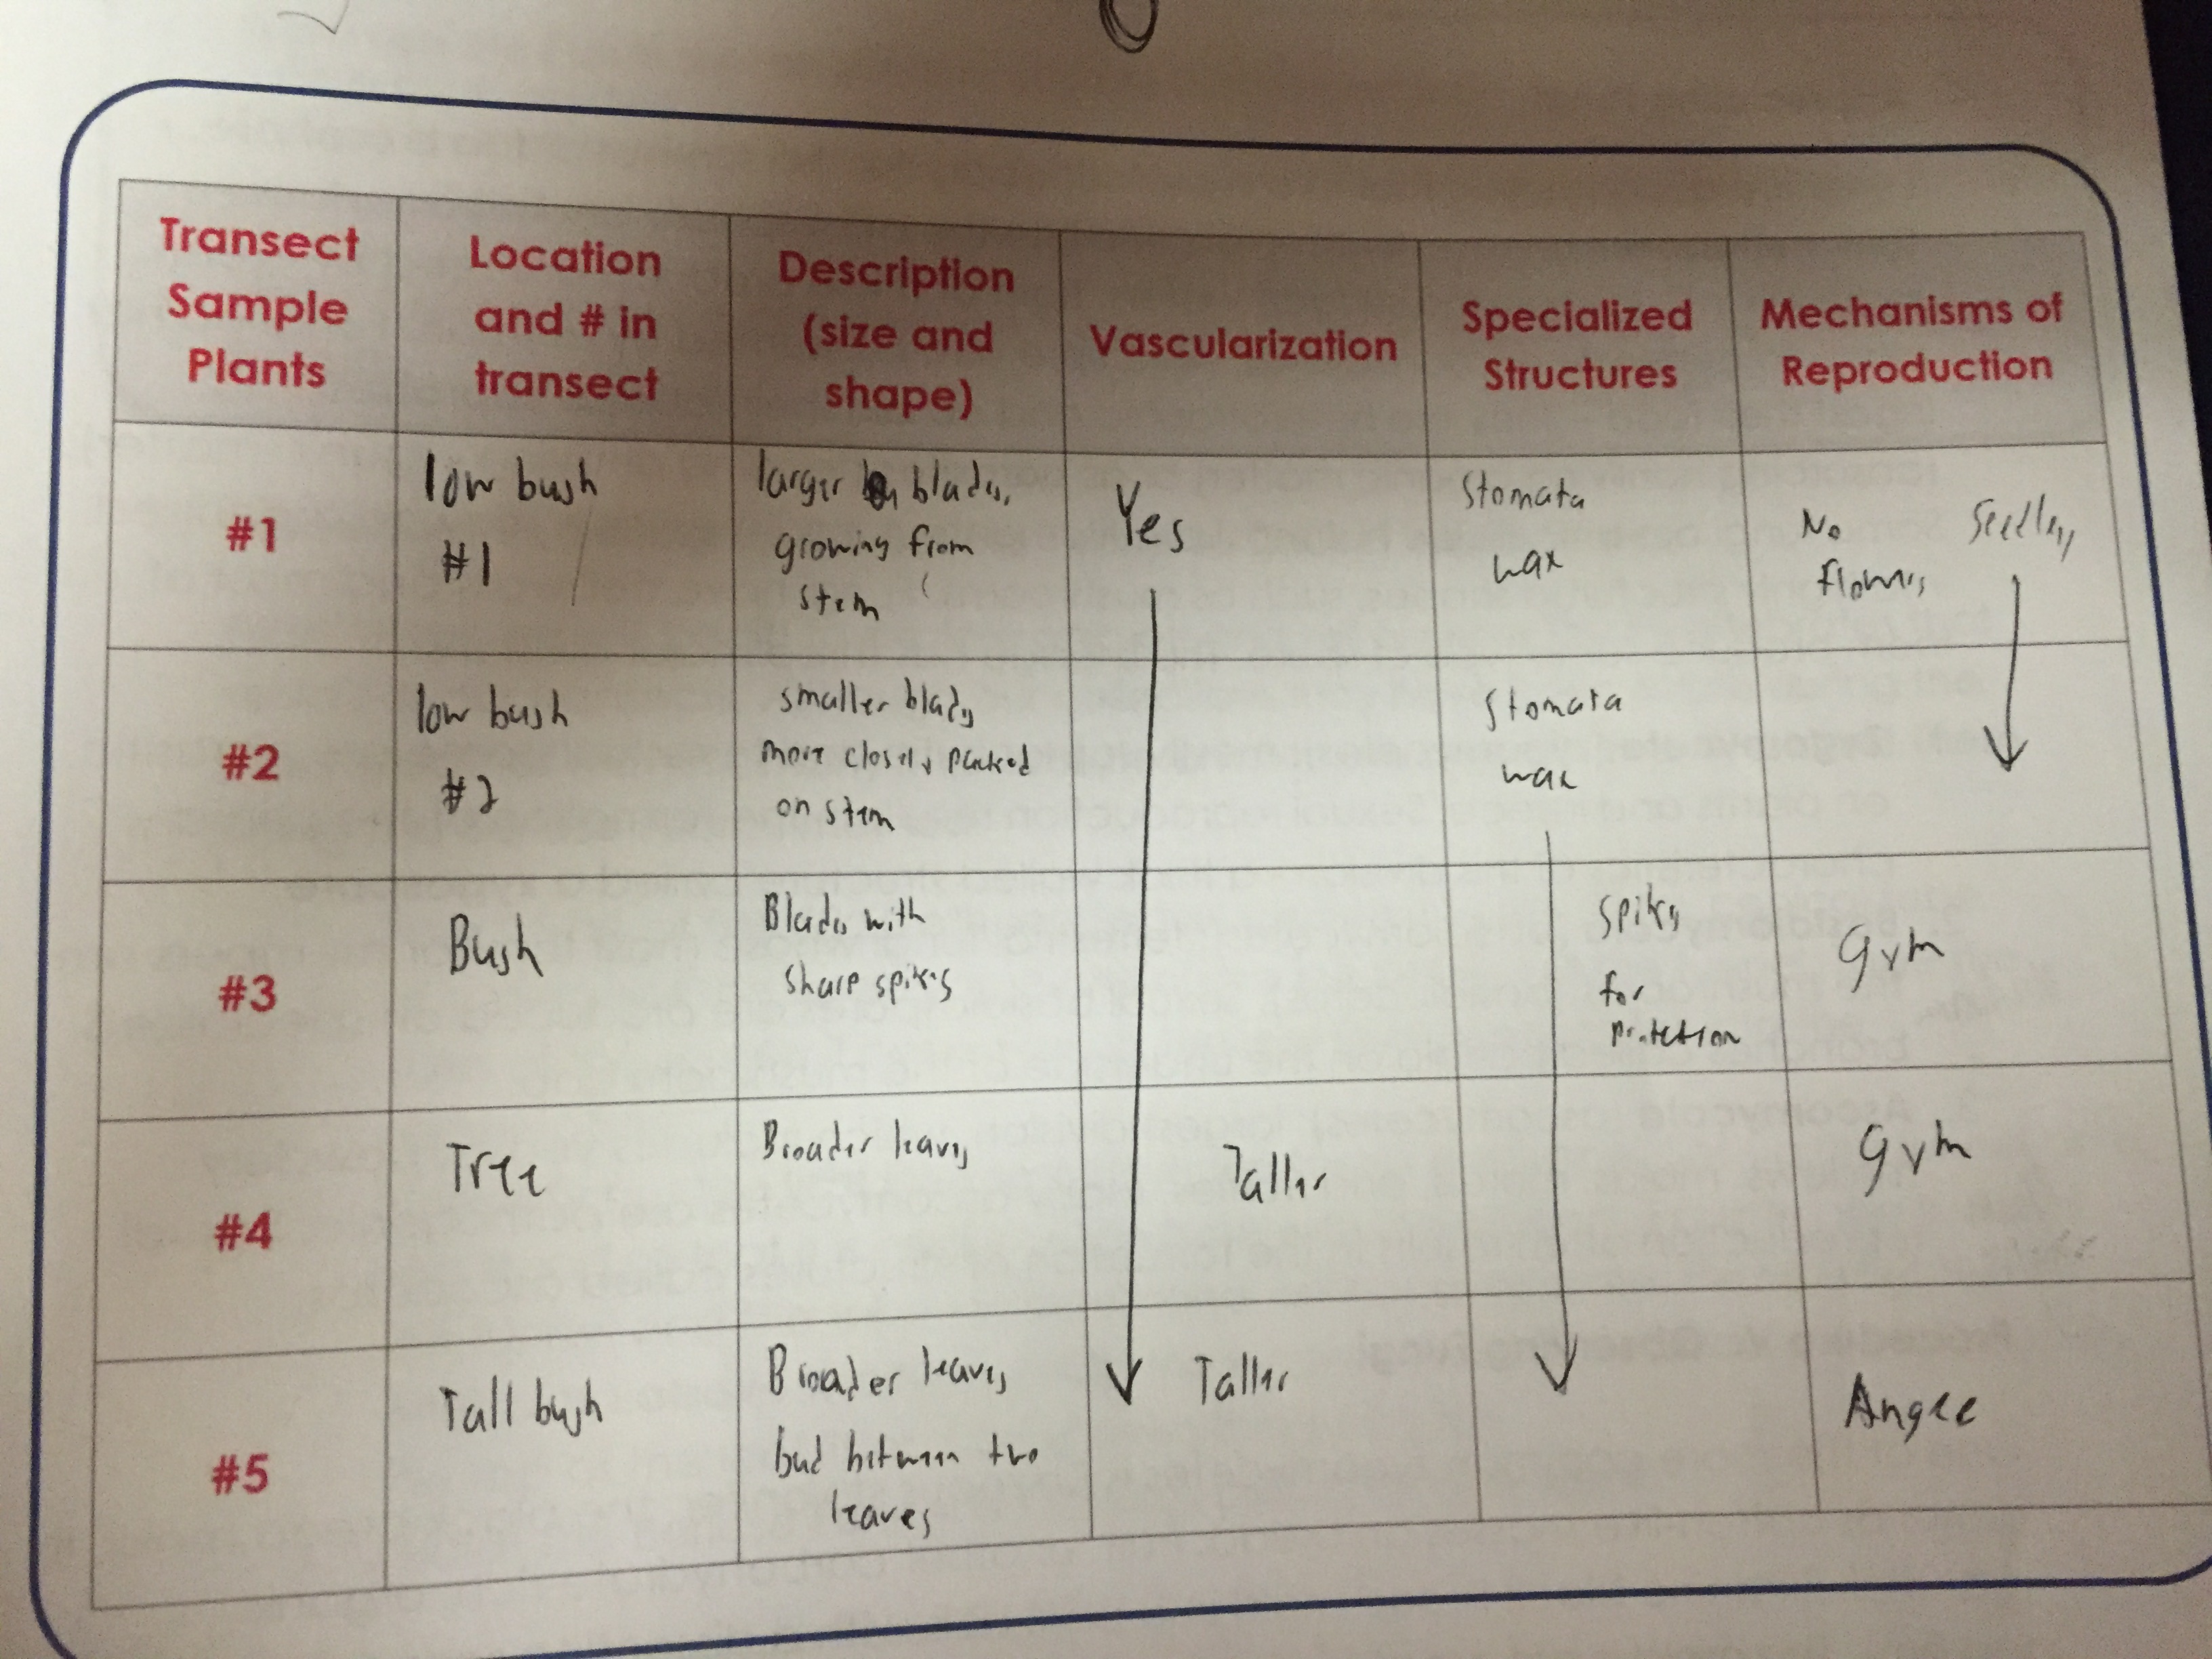 Transect
Sample
Plants
Location
and # in
transect
Description
(size and
shape)
Vascularization
Specialized
Structures
Mechanisms of
Reproduction
#1
low bush
#1
larger blades,
growing from
stem
Yes
Stomata
wax
No
flowers
#2
low bush
#2
smaller blades
more closely packed
on stem
Stomata
wax
#3
Bush
Blades with
sharp spikes
spikes
for
protection
Gym
#4
Tree
Broader leaves
Taller
Gym
#5
Tall bush
Broader leaves
bud between two
leaves
Taller